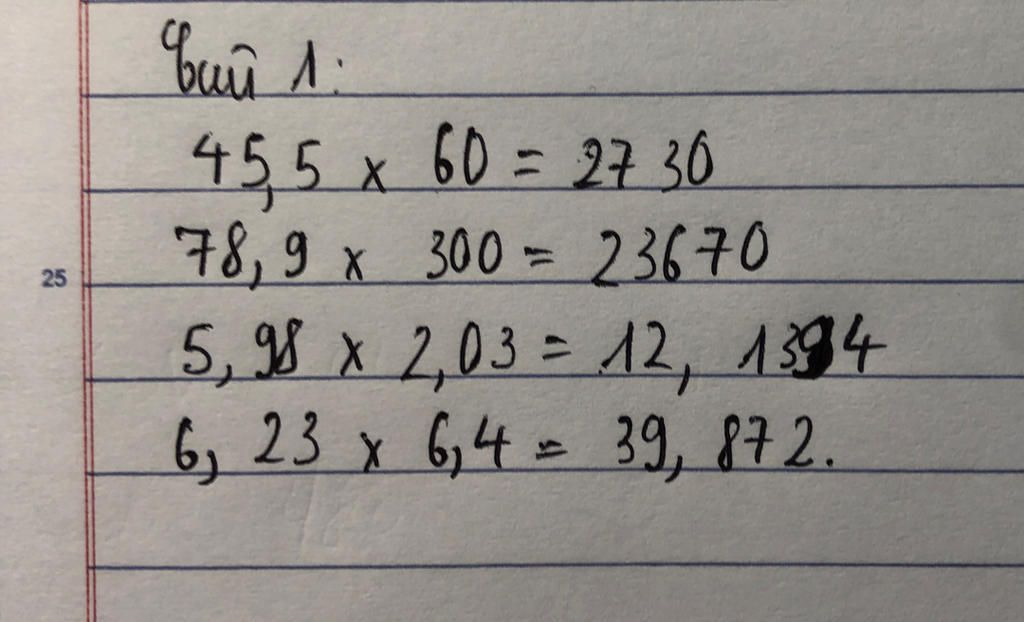 45,5 x 60 = 2730
78,9 x 300 = 23670
5,98 x 2,03 = 12,1394
6,23 x 6,4 = 39,872.
25